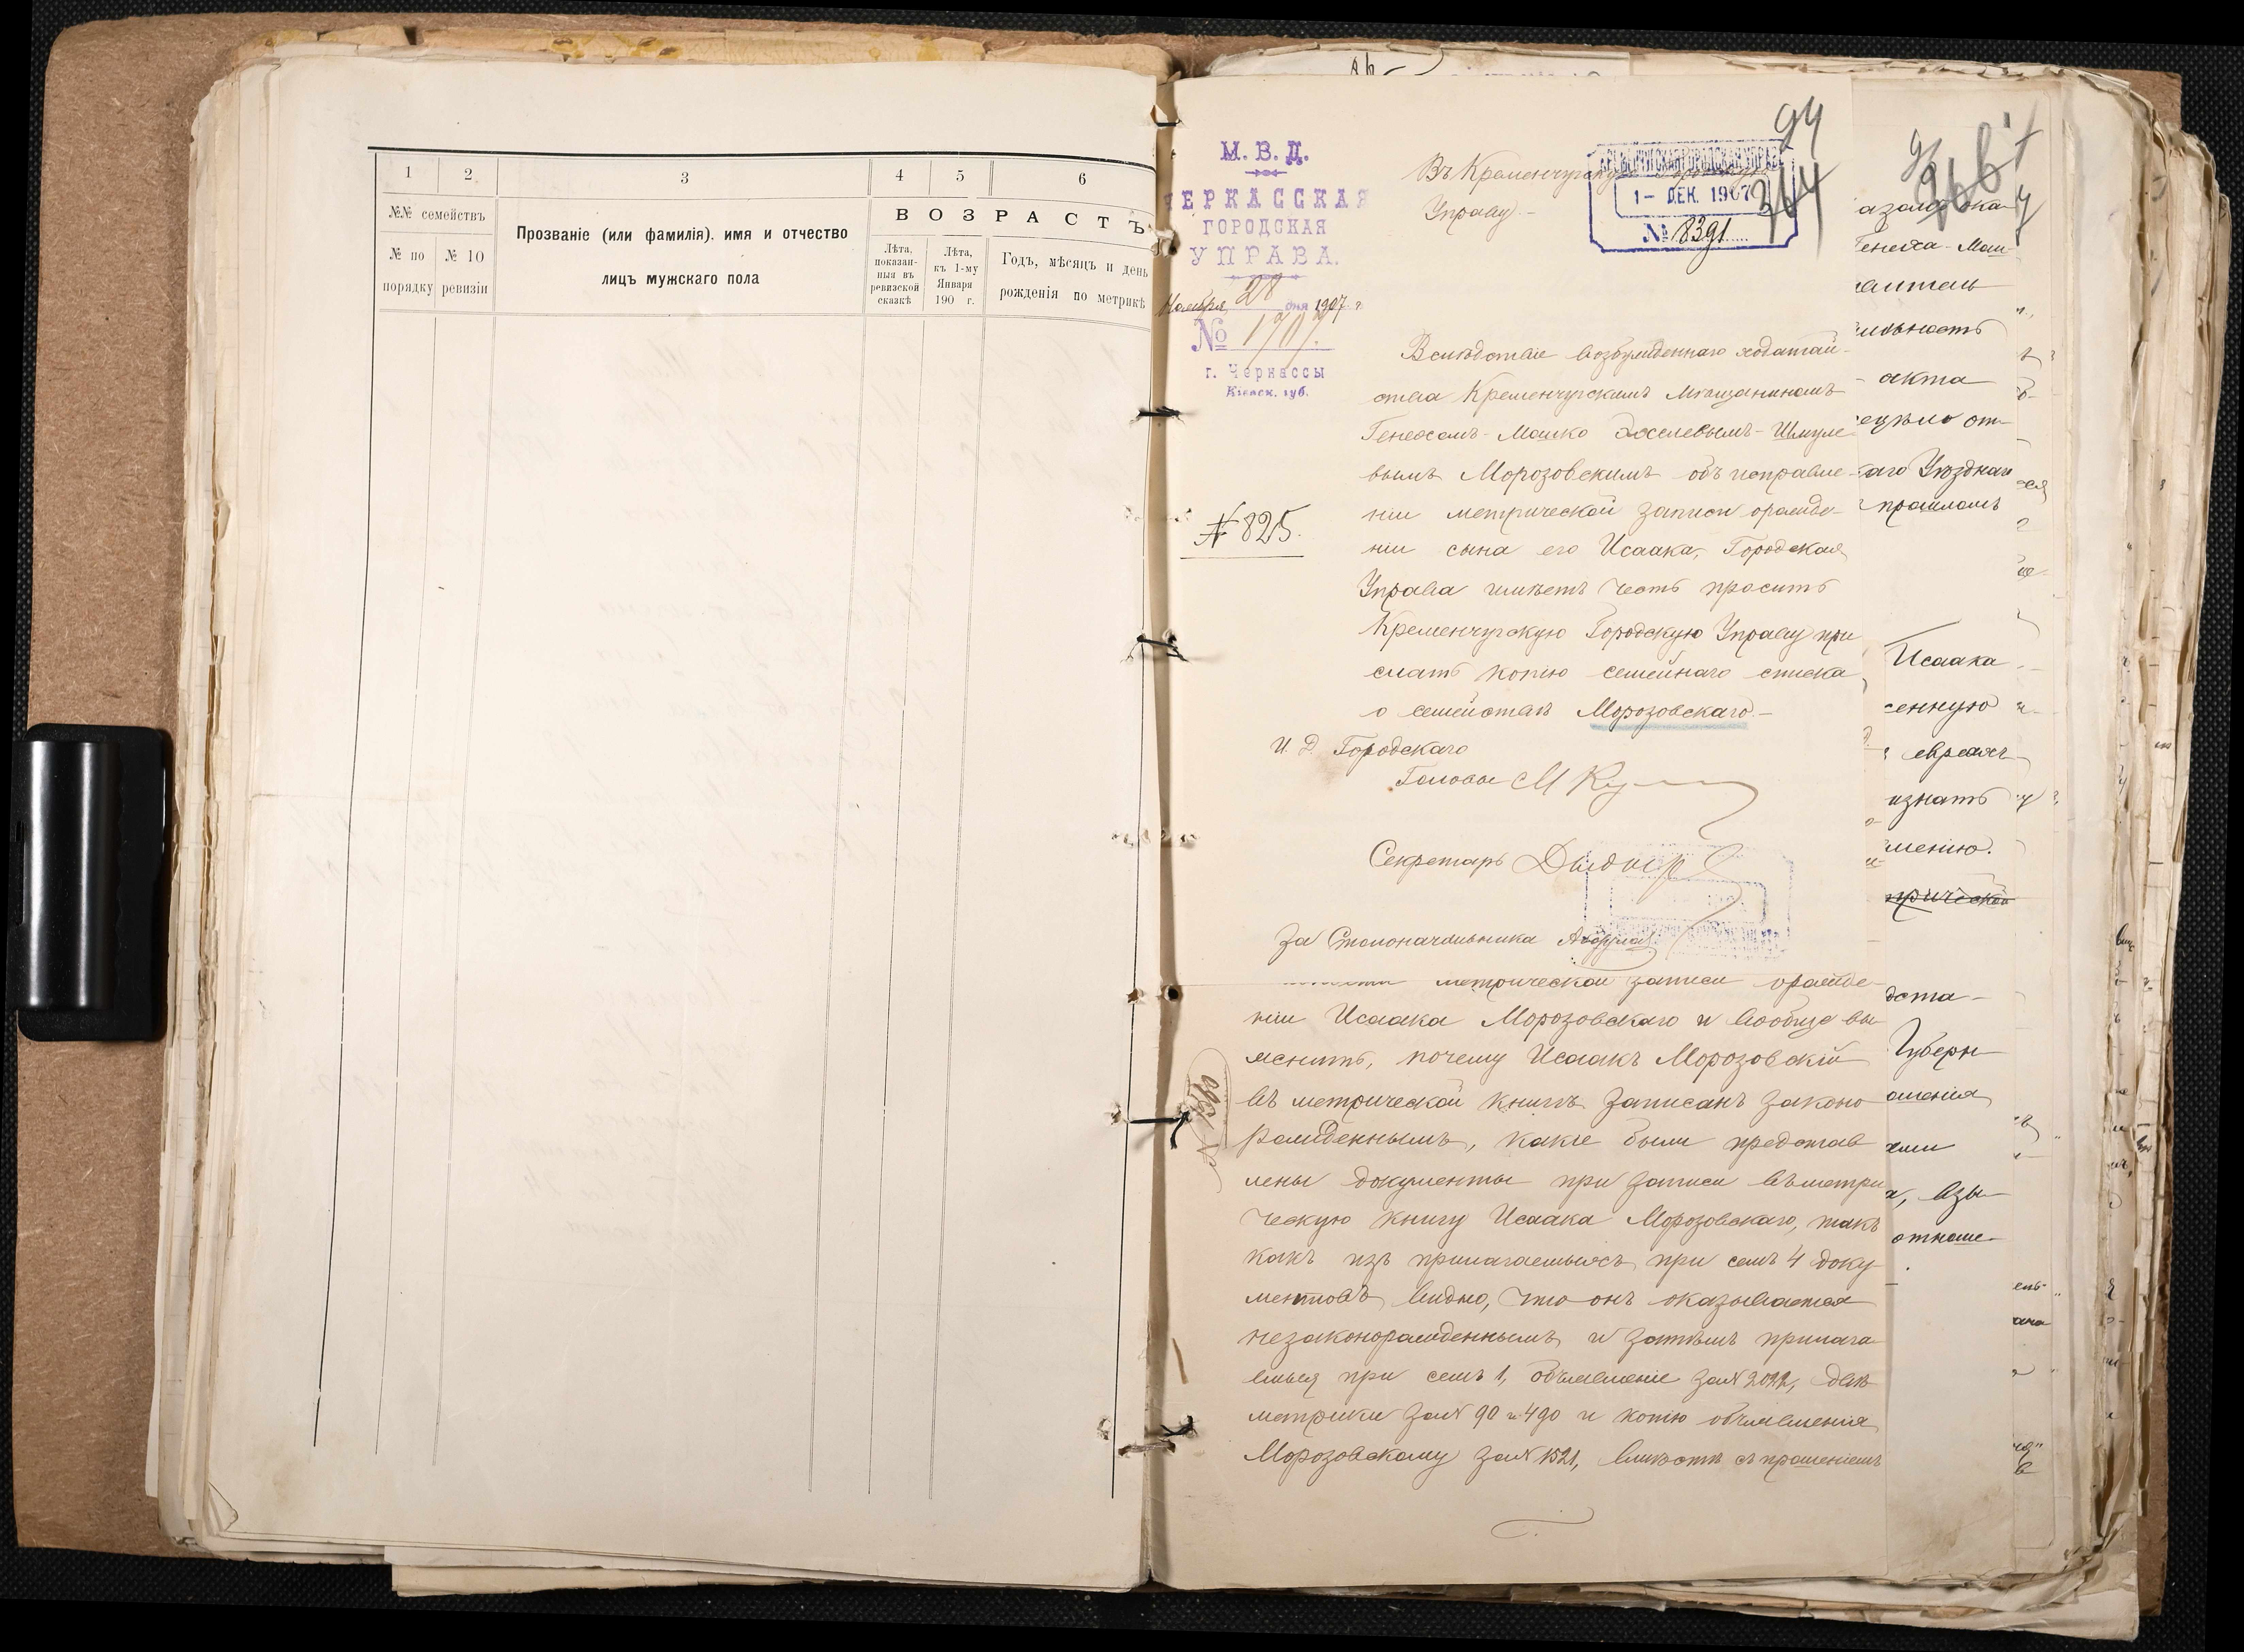 1
2
3
4
5
6
№№ семействъ
Прозваніе (или фамилія). имя и отчество
лицъ мужскаго пола
В О З Р А С Т Ъ
№ по
порядку
№ 10
ревизіи
Лѣта,
показан-
ныя въ
ревизской
сказкѣ
Лѣта,
къ 1-му
Января
190 г.
Годъ, мѣсяцъ и день
рожденія по метрикѣ
94
364
М. В. Д.
ЧЕРКАССКАЯ
ГОРОДСКАЯ
УПРАВА.
Ноября 28 дня 1907 г.
№ 1707.
г. Черкассы
Кіевск. губ.
№ 825.
Въ Кременчугскую Городскую
Управу.-
КРЕМЕНЧУГСКАЯ ГОРОДСКАЯ УПРАВА
1 - ДЕК. 1907
№ 8391
Вслѣдствіе возбужденнаго ходатай-
ства Кременчугскимъ Мѣщаниномъ
Генехомъ-Машко Хаселевымъ-Шмуле
вымъ Морозовскимъ объ исправле-
ніи метрической записи орожде-
ніи сына его Исаака, Городская
Управа имѣетъ честь просить
Кременчугскую Городскую Управу при
слать копію семейнаго списка
о семействѣ Морозовскаго.-
И. Д. Городскаго
Головы М
Секретарь
За Столоначальника
метрической записи орожде-
ніи Исаака Морозовскаго и вообще вы
яснить, почему Исаакъ Морозовскій
въ метрической книгѣ записанъ законо
рожденнымъ, какіе были представ
лены документы при записи въ метри
ческую книгу Исаака Морозовскаго, такъ
какъ изъ прилагаемыхъ при семъ 4 доку
ментовъ видно, что онъ оказывается
незаконорожденнымъ и затѣмъ прилага
емыя при семъ 1, объявленіе за № 2022, двѣ
метрики за № 90 и 490 и копію объявленія
Морозовскому за № 1521, вмѣстѣ съ прошеніемъ
Генеха-Маш-
акта
аго Уѣзднаго
прошломъ
Исаака
евреяхъ
Губерн
отноше-